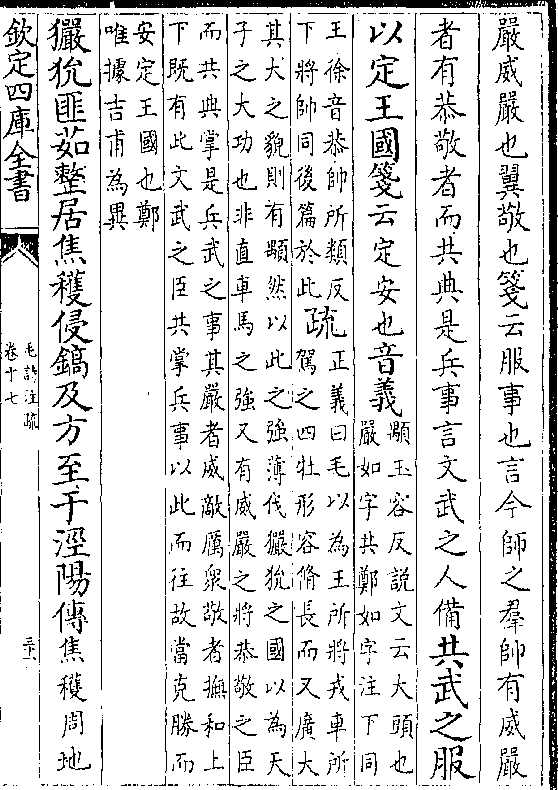 嚴威嚴也翼敬也箋云服事也言今師之羣帥有威嚴
者有恭敬者而共典是兵事言文武之人備共武之服
以定王國箋云定安也音義
顒玉容反説文云大頭也
嚴如字共鄭如字注下同
王徐音恭帥所類反
下將帥同後篇於此
疏
正義曰毛以為王所將戎車所
駕之四牡形容脩長而又廣大
其大之貌則有顒然以此之強薄伐玁狁之國以為天
子之大功也非直車馬之強又有威嚴之將恭敬之臣
而共典掌是兵武之事其嚴者威敵厲衆敬者撫和上
下既有此文武之臣共掌兵事以此而往故當克勝而
安定王國也鄭
唯據吉甫為異
玁狁匪茹整居焦穫侵鎬及方至于涇陽傳焦穫周地
欽定四庫全書
毛詩注疏
卷十七